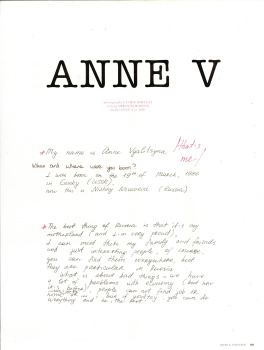 ANNE V
*My name is Anne Vyalitsyna
that's me!
When and where were you born?
I was born on the 19th of March, 1986
in Gorky (USSR),
now this is Nizhny Novgorod (Russia)
*The best thing of Russia is that it's my
motherland (and I'm very proud),
I can meet there my family and friends
and just interesting people, of course,
you can find them everywhere, but
they are particular in Russia
What is about bad things - we have
a lot of problems with economy (but now
it's better), people can not find job to
work at
everything and be the best!